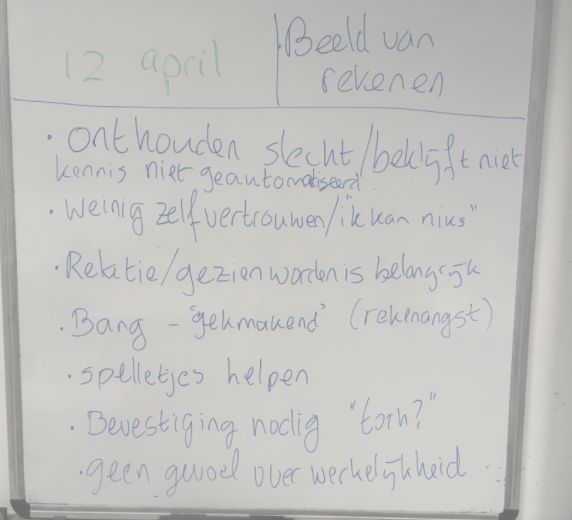 12 april
Beeld van
rekenen
• onthouden slecht/beklijft niet
kennis niet geautomatiseerd
• Weinig zelfvertrouwen/"ik kan niks"
• Relatie/gezien worden is belangrijk
• Bang - "gekmakend" (rekenangst)
• spelletjes helpen
• Bevestiging nodig "toch?"
• geen gevoel over werkelijkheid